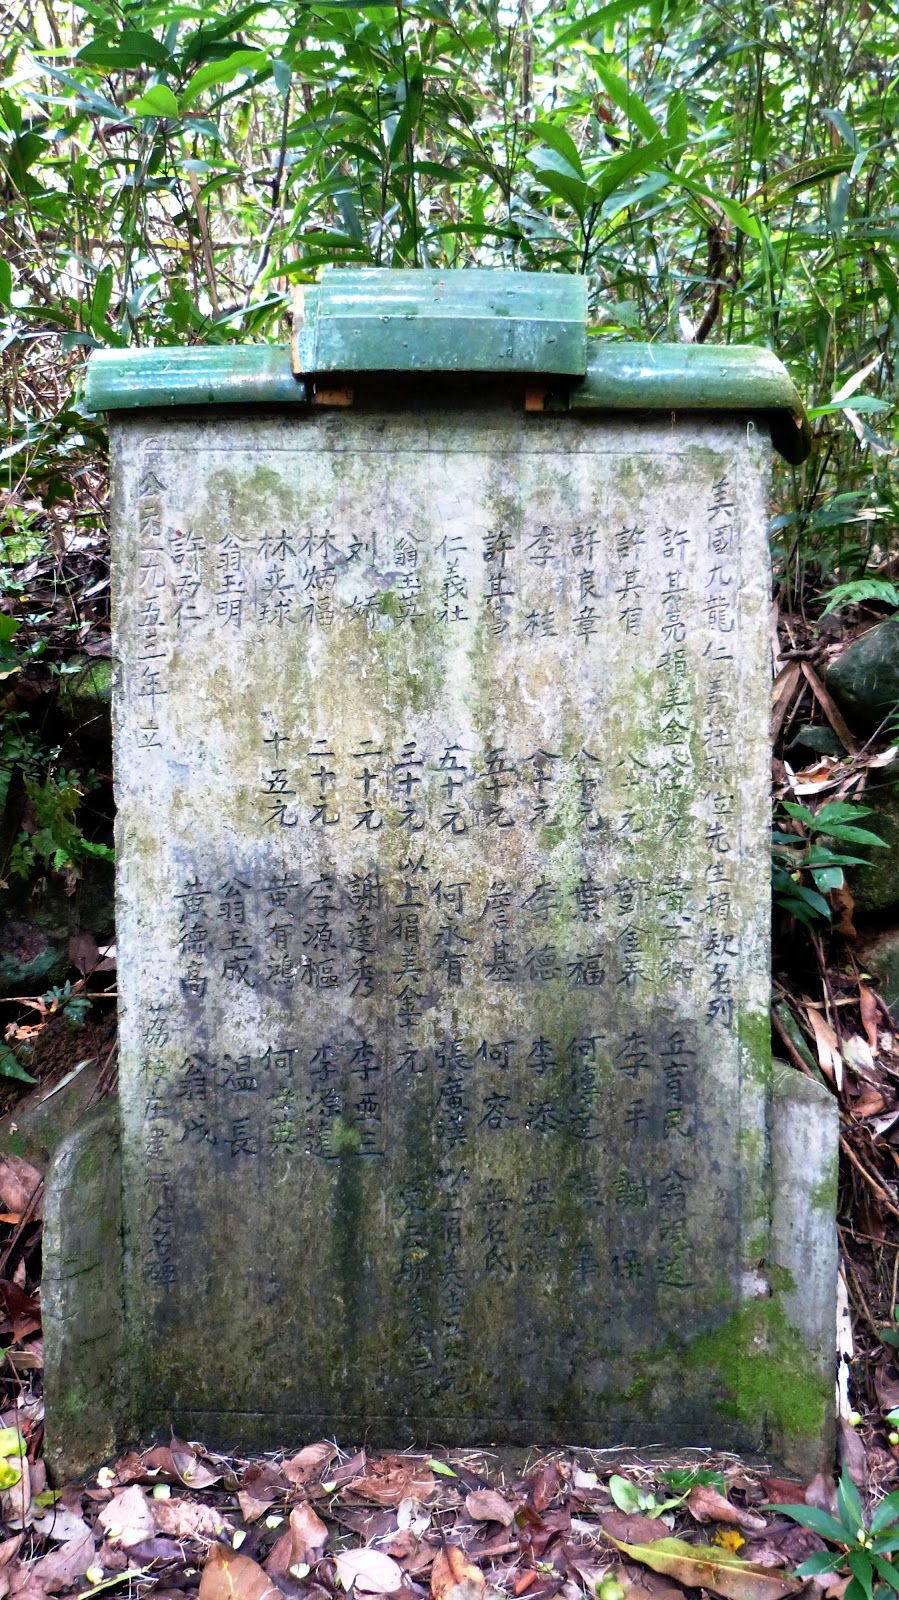 美國九龍仁義社列位先生捐欵名列
許其亮捐美金 元 黃子卿 丘育民 翁 送
許其有 八十元 鄧金養 李手 謝保
許良章 八十元 葉福 何傳達 陳年
李桂 八十元 李德 李添 巫
許其 五十元 詹基 何容 無名氏
仁義社 五十元 何永有 張廣漢 以上捐美金五元
翁玉英 三十元 以上捐美金 元 美金三元
刘娣 二十元 謝達秀 李亞三
林炳福 二十元 李源樞 李源進
林 球 十五元 黃有鴻 何 英
翁玉明 翁玉成 温長
許丙仁 黃德高 翁戊
公元一九五二年立 荔枝庄建 人名碑